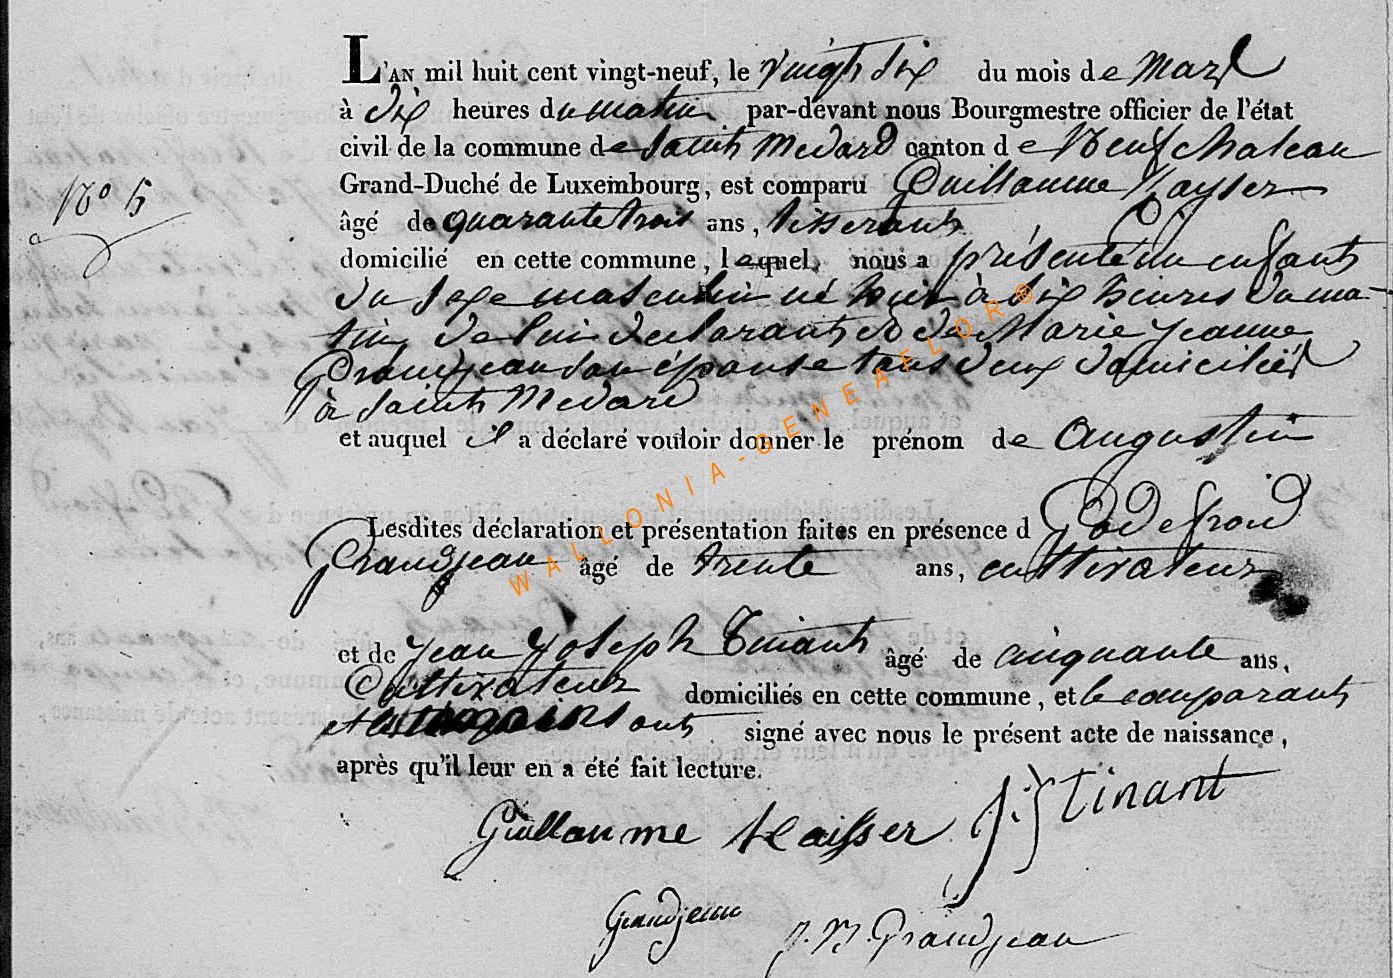 L'AN mil huit cent vingt-neuf, le vingt six du mois de mars
à dix heures du matin par-devant nous Bourgmestre officier de l'état
civil de la commune de Saint Medard canton de Neufchateau
N° 5
Grand-Duché de Luxembourg, est comparu Guillaume Kayser
âgé de quarante trois ans, tisserant
domicilié en cette commune, lequel, nous a présenté un enfant
du sexe masculin né hier à dix heures du ma-
tin, de lui declarant et de Marie Jeanne
Grandjean son épouse tous deux domiciliés
à Saint Medard
et auquel il a déclaré vouloir donner le prénom de Augustin
Lesdites déclaration et présentation faites en présence d Godefroid
Grandjean âgé de trente ans, cultivateur
et de Jean Joseph Tinant âgé de cinquante ans,
Cultivateur domiciliés en cette commune, et le comparant
et les temoins ont signé avec nous le présent acte de naissance,
après qu'il leur en a été fait lecture.
Guillaume Kaisser J: J Tinant
Grandjean J. N. Grandjean
WALLONIA-GENEAFLOR®